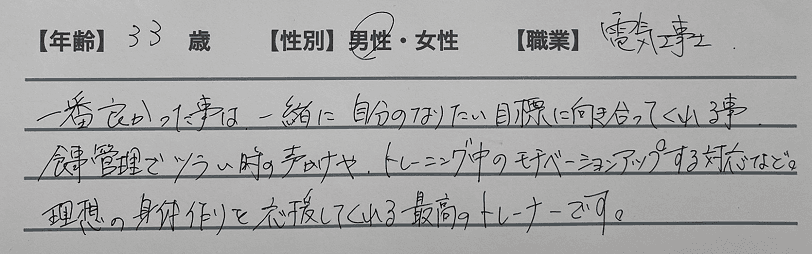 【年齢】 33 歳 【性別】 男性・女性 【職業】 電気工事士
一番良かった事は、一緒に自分のなりたい目標に向き合ってくれる事。
食事管理でツラい時の声かけや、トレーニング中のモチベーションアップする対応など。
理想の身体作りを応援してくれる最高のトレーナーです。